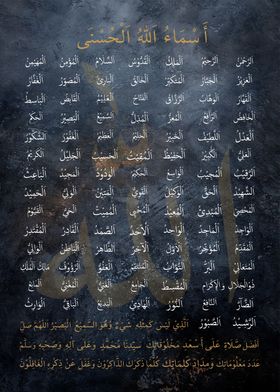 أَسْمَاءُ اللهُ الْحُسْنَى
الرَّحْمَنُ الرَّحِيْمُ الْمَلِكُ الْقُدُّوْسُ السَّلَامُ الْمُؤْمِنُ الْمُهَيْمِنُ
الْعَزِيْزُ الْجَبَّارُ الْمُتَكَبِّرُ الْخَالِقُ الْبَارِئُ الْمُصَوِّرُ الْغَفَّارُ
الْقَهَّارُ الْوَهَّابُ الرَّزَّاقُ الْفَتَّاحُ الْعَلِيْمُ الْقَابِضُ الْبَاسِطُ
الْخَافِضُ الرَّافِعُ الْمُعِزُّ الْمُذِلُّ السَّمِيْعُ الْبَصِيْرُ الْحَكَمُ
الْعَدْلُ اللَّطِيْفُ الْخَبِيْرُ الْحَلِيْمُ الْعَظِيْمُ الْغَفُوْرُ الشَّكُوْرُ
الْعَلِيُّ الْكَبِيْرُ الْحَفِيْظُ الْمُقِيْتُ الْحَسِيْبُ الْجَلِيْلُ الْكَرِيْمُ
الرَّقِيْبُ الْمُجِيْبُ الْوَاسِعُ الْحَكِيْمُ الْوَدُوْدُ الْمَجِيْدُ الْبَاعِثُ
الشَّهِيْدُ الْحَقُّ الْوَكِيْلُ الْقَوِيُّ الْمَتِيْنُ الْوَلِيُّ الْحَمِيْدُ
الْمُحْصِيْ الْمُبْدِئُ الْمُعِيْدُ الْمُحْيِيْ الْمُمِيْتُ الْحَيُّ الْقَيُّوْمُ
الْوَاجِدُ الْمَاجِدُ الْوَاحِدُ الْأَحَدُ الصَّمَدُ الْقَادِرُ الْمُقْتَدِرُ
الْمُقَدِّمُ الْمُؤَخِّرُ الْأَوَّلُ الْآخِرُ الظَّاهِرُ الْبَاطِنُ الْوَالِيْ
الْمُتَعَالِيْ الْبَرُّ التَّوَّابُ الْمُنْتَقِمُ الْعَفُوُّ الرَّؤُوْفُ مَالِكُ الْمُلْكِ
ذُو الْجَلَالِ وَالْإِكْرَامِ الْمُقْسِطُ الْجَامِعُ الْغَنِيُّ الْمُغْنِيْ الْمَانِعُ
الضَّارُّ النَّافِعُ النُّوْرُ الْهَادِيْ الْبَدِيْعُ الْبَاقِيْ الْوَارِثُ
الرَّشِيْدُ الصَّبُوْرُ الَّذِيْ لَيْسَ كَمِثْلِهِ شَيْءٌ وَهُوَ السَّمِيْعُ الْبَصِيْرُ اللَّهُمَّ صَلِّ
أَفْضَلَ صَلَاةٍ عَلَى أَسْعَدِ مَخْلُوْقَاتِكَ سَيِّدِنَا مُحَمَّدٍ وَعَلَى آلِهِ وَصَحْبِهِ وَسَلِّمْ
عَدَدَ مَعْلُوْمَاتِكَ وَمِدَادَ كَلِمَاتِكَ كُلَّمَا ذَكَرَكَ الذَّاكِرُوْنَ وَغَفَلَ عَنْ ذِكْرِهِ الْغَافِلُوْنَ
الله